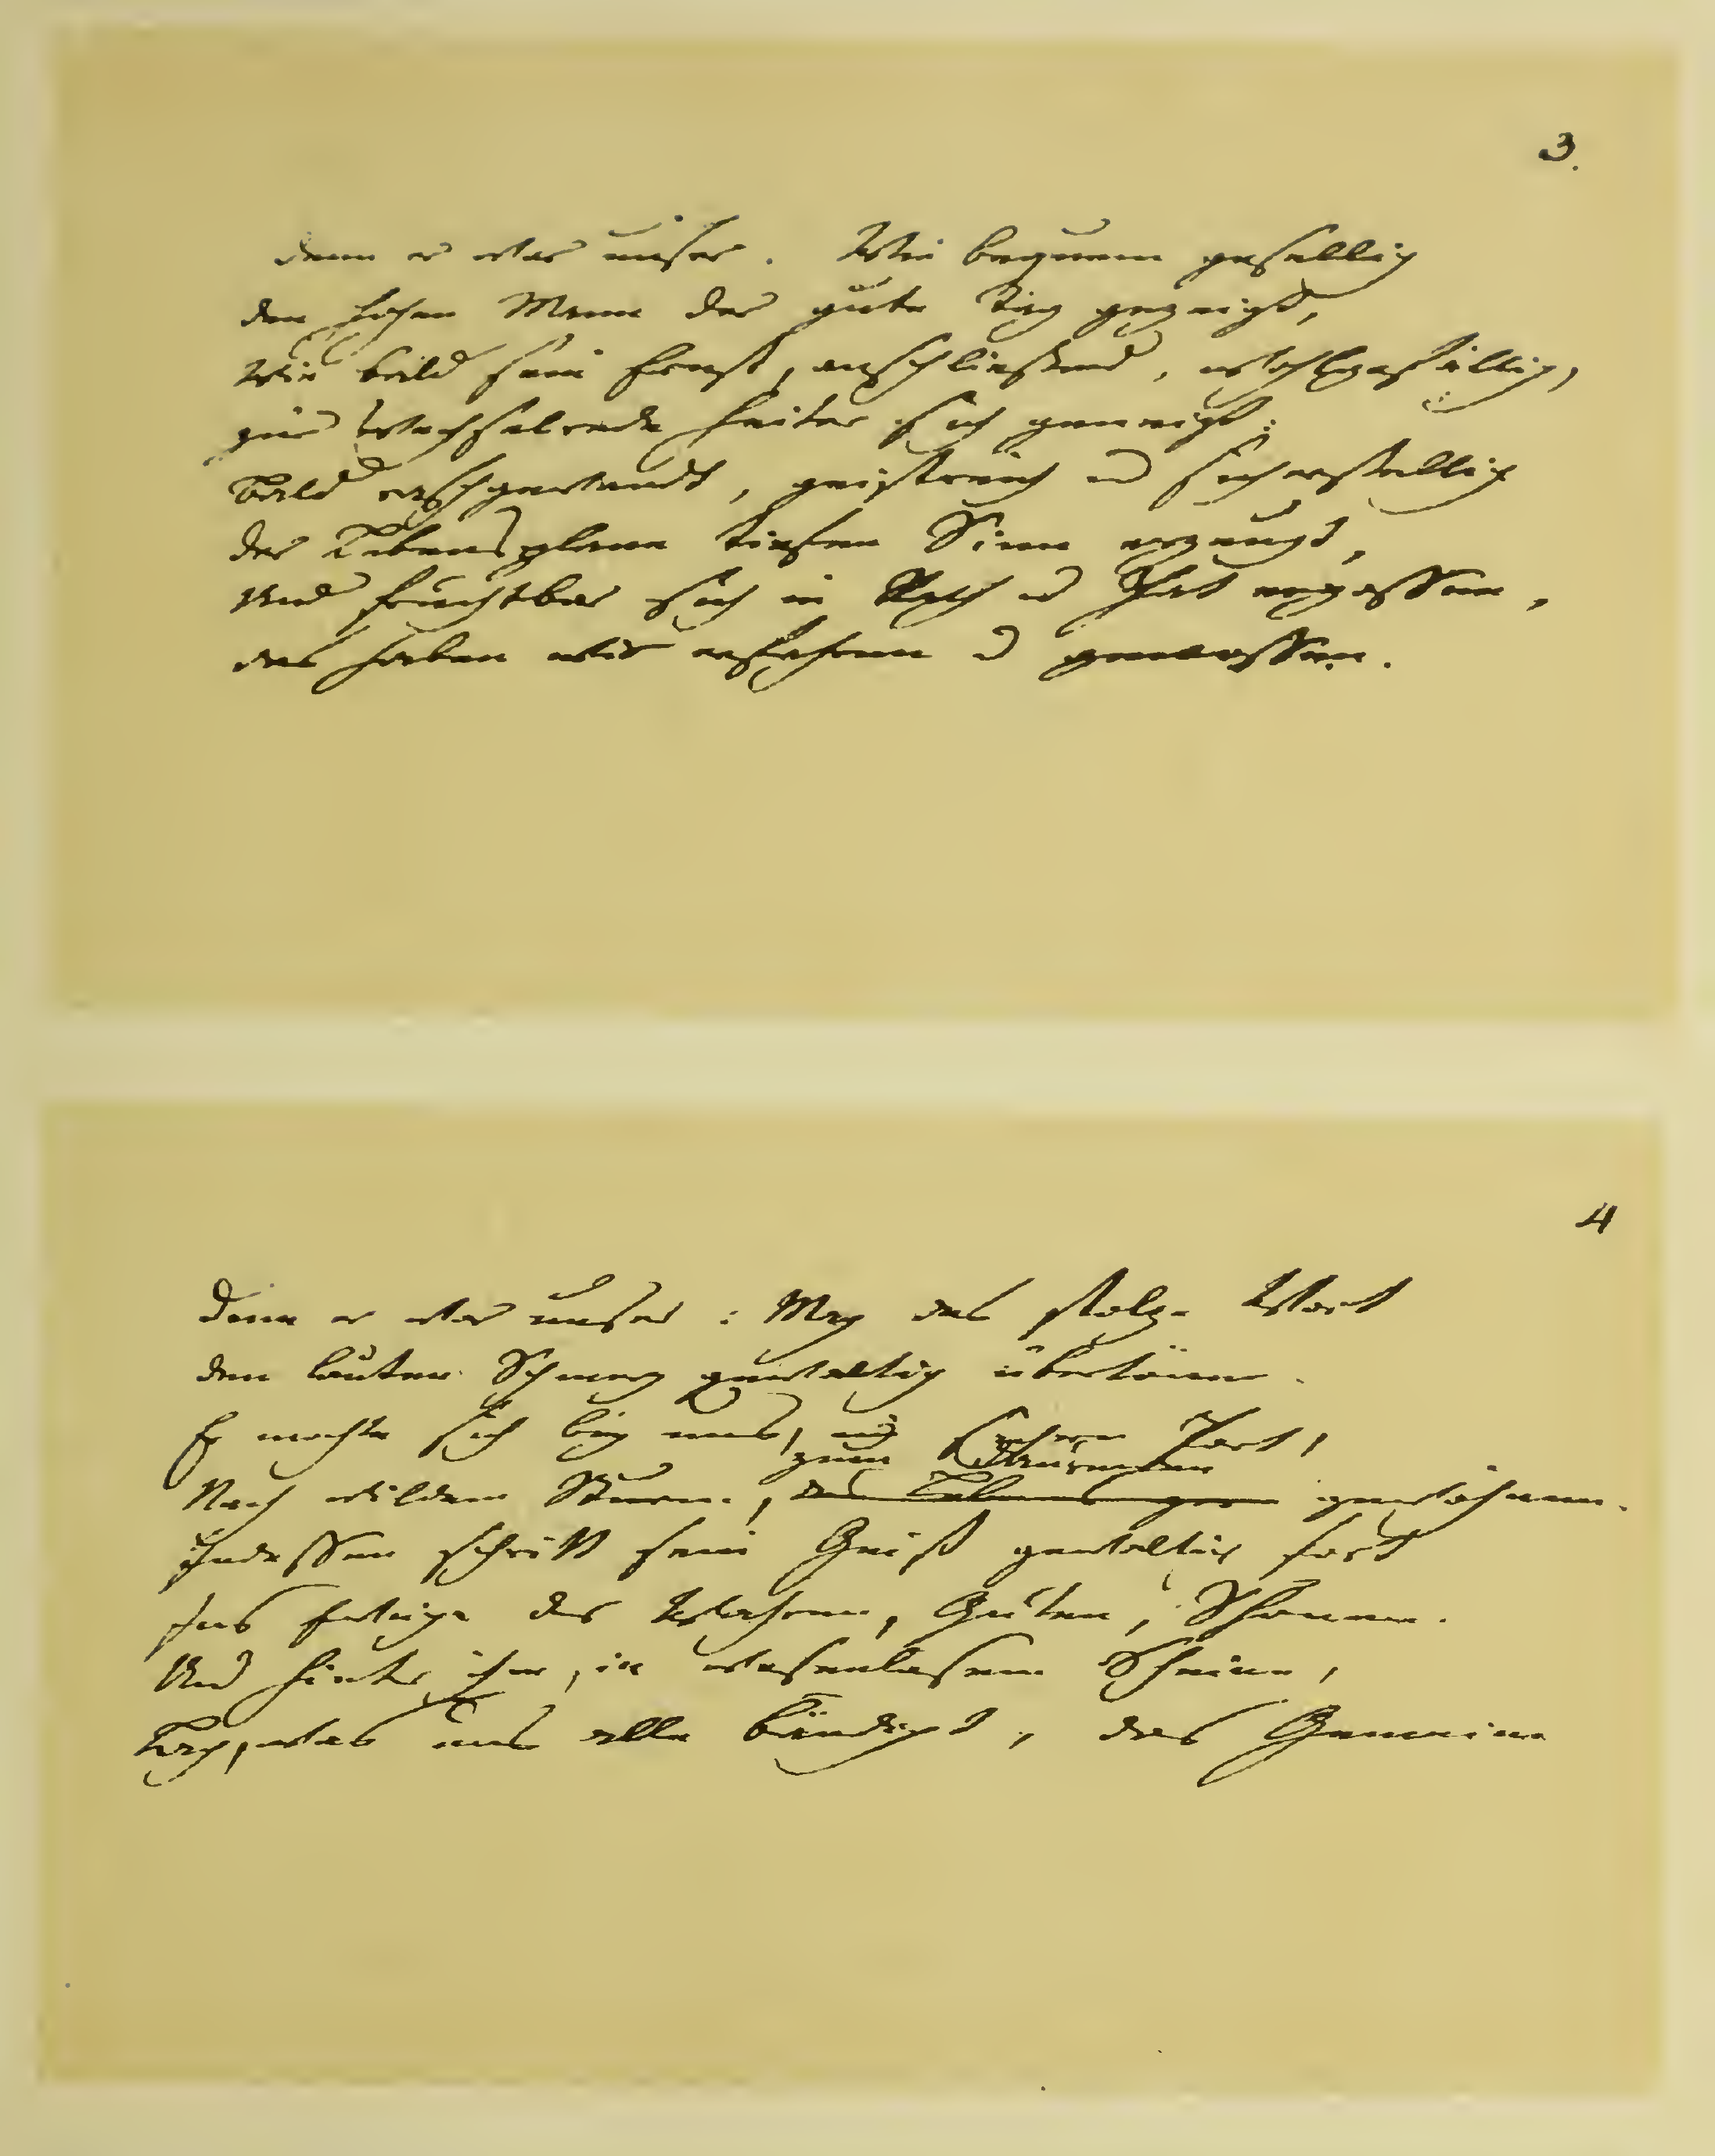 3.
denn er war unser. Wie bequem gesellig
den hohen Mann der gute Tag gezeigt,
Wie bald sein Ernst, anschließend, wohlgefällig,
zur Wechselrede heiter sich geneigt;
Bald raschgewandt, geistreich u sicherstellig
der Lebensplane tiefen Sinn erzeugt,
Und fruchtbar sich in Rath u That ergossen,
das haben wir erfahren u genossen.
4
Denn er war unser: Mag das stolze Wort
den lauten Schmerz gewaltig übertönen.
Er mochte sich bey uns, im sichern Port,
zum Daurenden
Nach wildem Sturm, des Lebens gern gewöhnen.
Indessen schritt sein Geist gewaltig fort
Ins Ewige des Wahren, Guten, Schönen.
Und hinter ihm, in wesenlosem Scheine,
Lag, was uns alle bändigt, das Gemeine